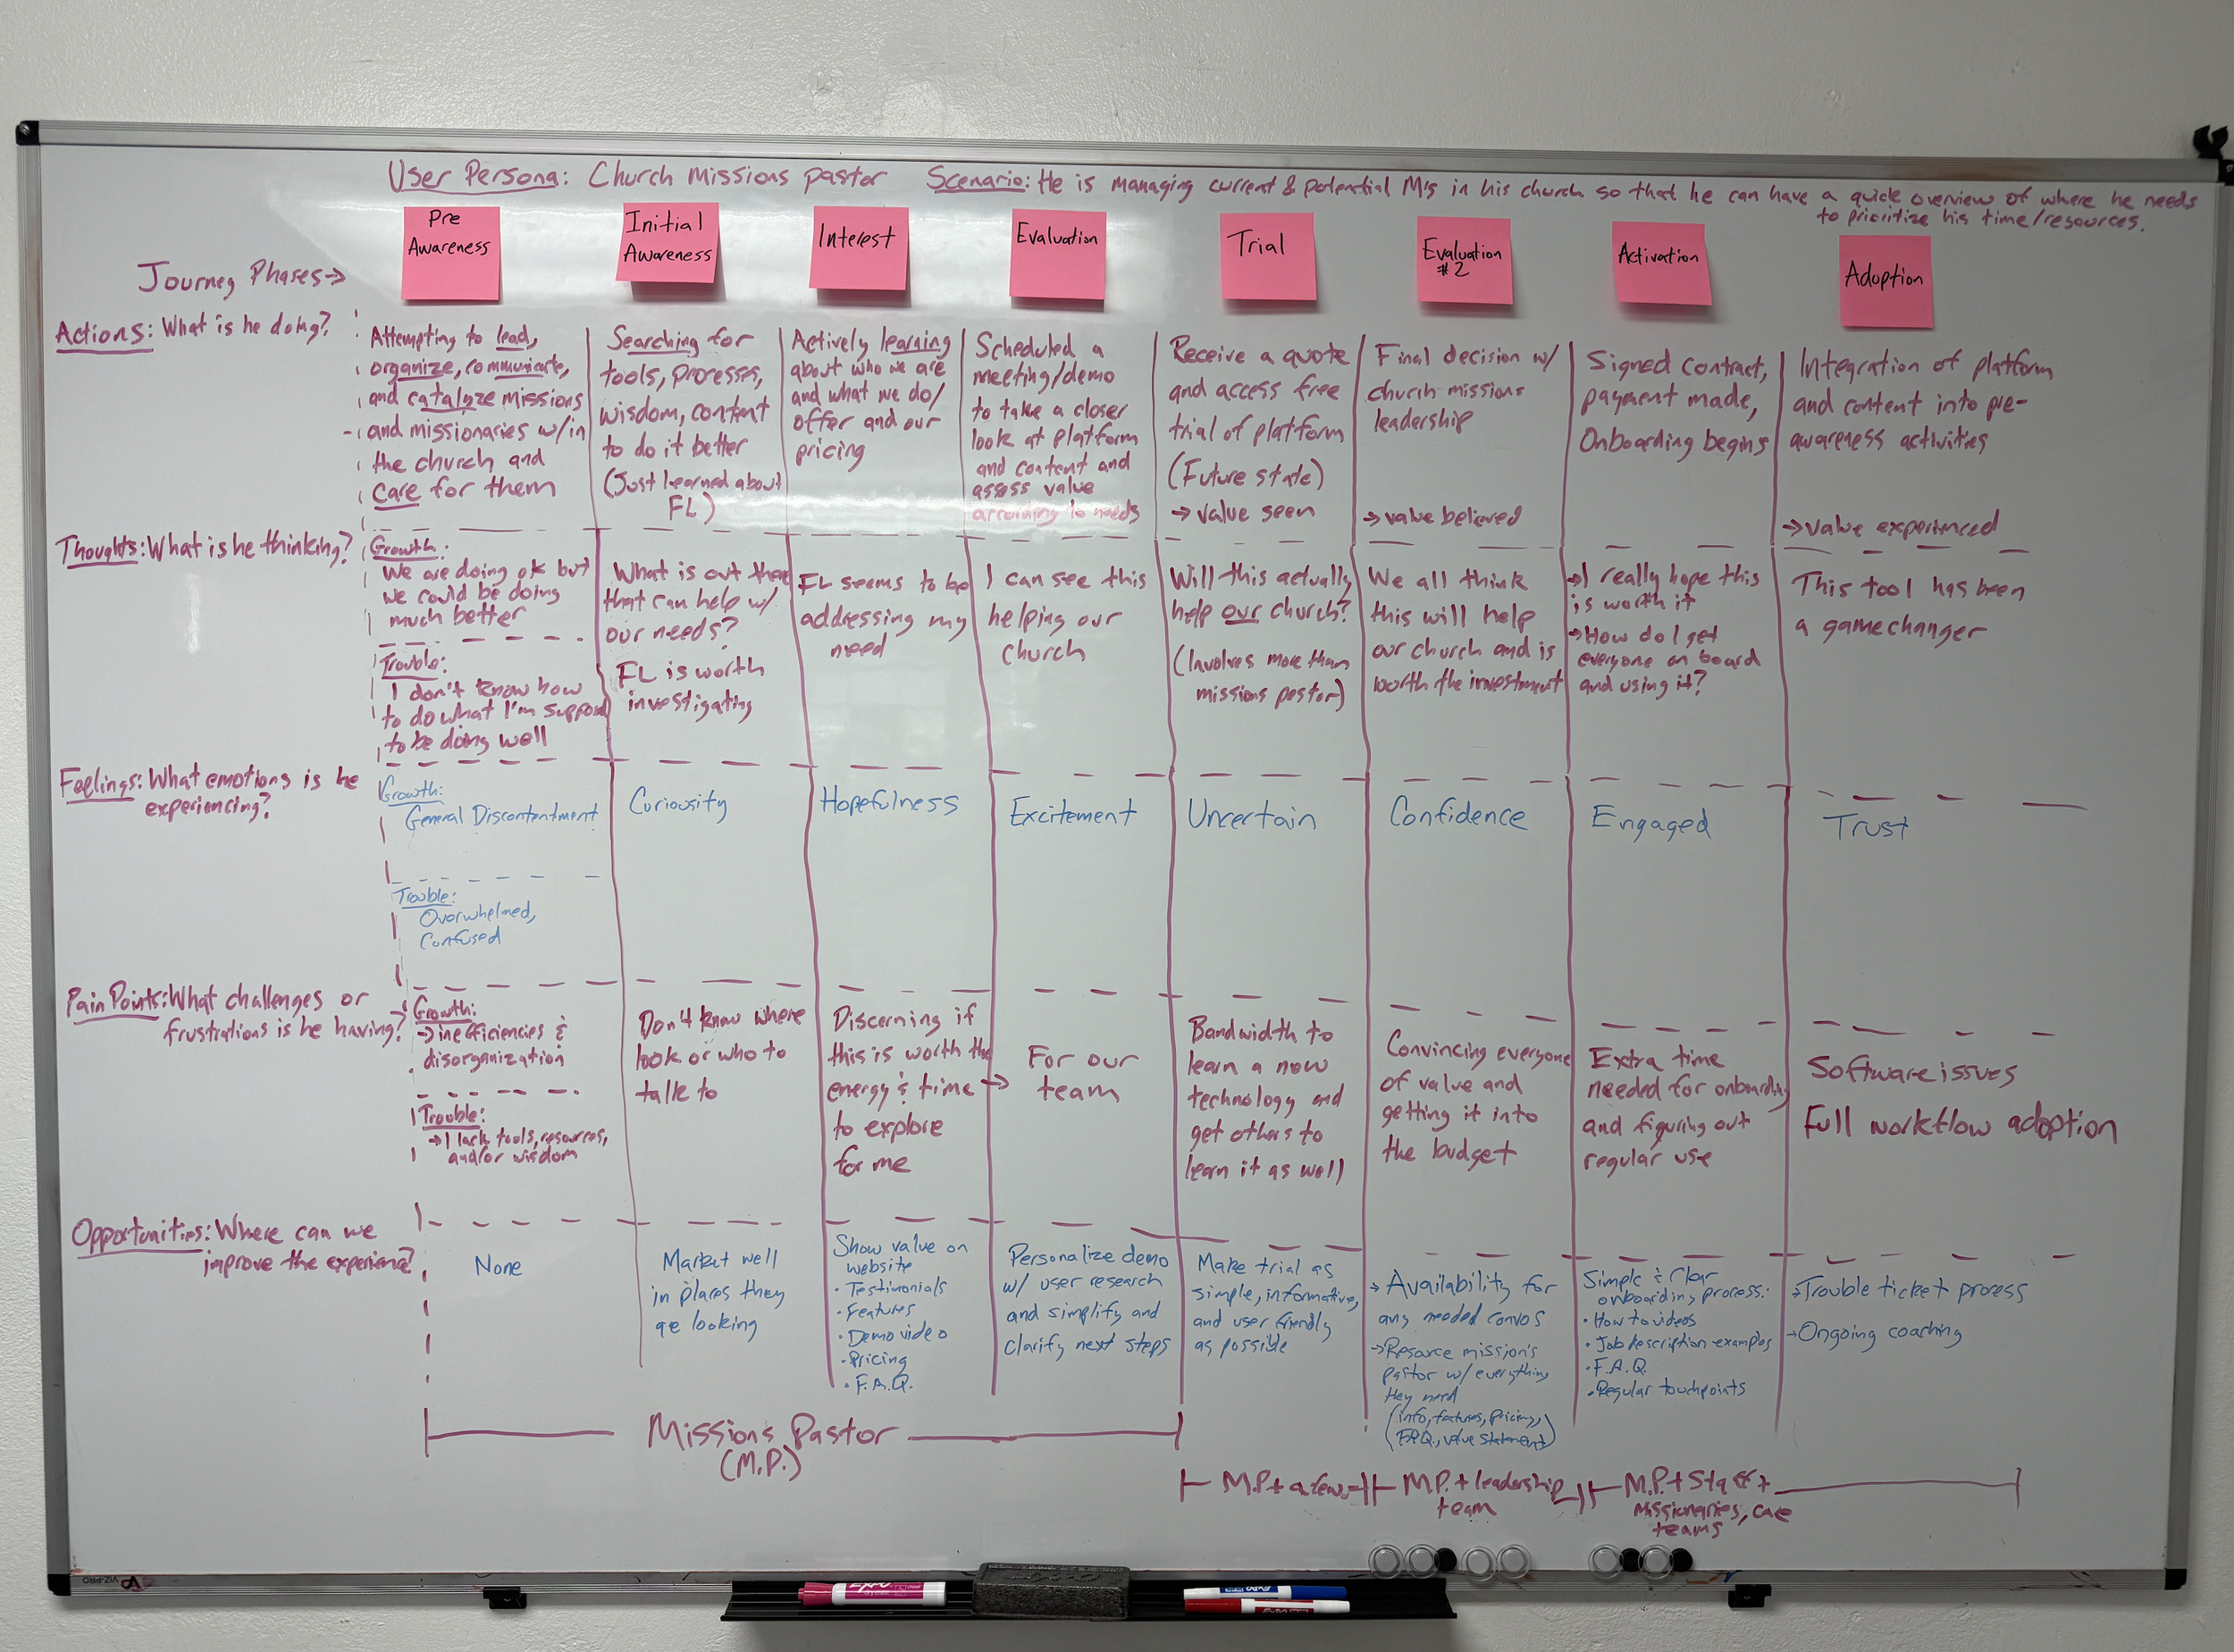 User Persona: Church missions pastor Scenario: He is managing current & potential M's in his church so that he can have a quick overview of where he needs
to prioritize his time/resources.
Journey Phases →
Pre
Awareness
Initial
Awareness
Interest
Evaluation
Trial
Evaluation
#2
Activation
Adoption
Actions: What is he doing?
Attempting to lead,
organize, communicate,
and catalyze missions
and missionaries w/in
the church and
care for them
Searching for
tools, processes,
wisdom, content
to do it better
(Just learned about
FL)
Actively learning
about who we are
and what we do/
offer and our
pricing
Scheduled a
meeting/demo
to take a closer
look at platform
and content and
assess value
according to needs
Receive a quote
and access free
trial of platform
(Future state)
→ value seen
Final decision w/
church missions
leadership
→ value believed
Signed contract,
payment made,
Onboarding begins
Integration of platform
and content into pre-
awareness activities
→ value experienced
Thoughts: What is he thinking?
Growth:
We are doing ok but
we could be doing
much better
Trouble:
I don't know how
to do what I'm supposed
to be doing well
What is out there
that can help w/
our needs?
FL is worth
investigating
FL seems to be
addressing my
need
I can see this
helping our
church
Will this actually
help our church?
(Involves more than
missions pastor)
We all think
this will help
our church and is
worth the investment
→ I really hope this
is worth it
→ How do I get
everyone on board
and using it?
This tool has been
a gamechanger
Feelings: What emotions is he
experiencing?
Growth:
General Discontentment
Trouble:
Overwhelmed,
Confused
Curiousity
Hopefulness
Excitement
Uncertain
Confidence
Engaged
Trust
Pain Points: What challenges or
frustrations is he having?
Growth:
→ inefficiencies &
disorganization
Trouble:
→ I lack tools, resources,
and/or wisdom
Don't know where
look or who to
talk to
Discerning if
this is worth the
energy & time →
to explore
for me
For our
team
Bandwidth to
learn a new
technology and
get others to
learn it as well
Convincing everyone
of value and
getting it into
the budget
Extra time
needed for onboarding
and figuring out
regular use
Software issues
Full workflow adoption
Opportunities: Where can we
improve the experience?
None
Market well
in places they
are looking
Show value on
website
• Testimonials
• Features
• Demo video
• Pricing
• F.A.Q.
Personalize demo
w/ user research
and simplify and
clarify next steps
Make trial as
simple, informative,
and user friendly
as possible
→ Availability for
any needed convos
→ Resource mission's
pastor w/ everything
they need
(info, features, pricing,
F.A.Q., value statement)
Simple & Clear
onboarding process:
• How to videos
• Job description examples
• F.A.Q.
• Regular touchpoints
→ Trouble ticket process
→ Ongoing coaching
Missions Pastor
(M.P.)
M.P. + a few
M.P. + leadership
team
M.P. + Staff +
missionaries, care
teams
VIZ-PRO
EXPO